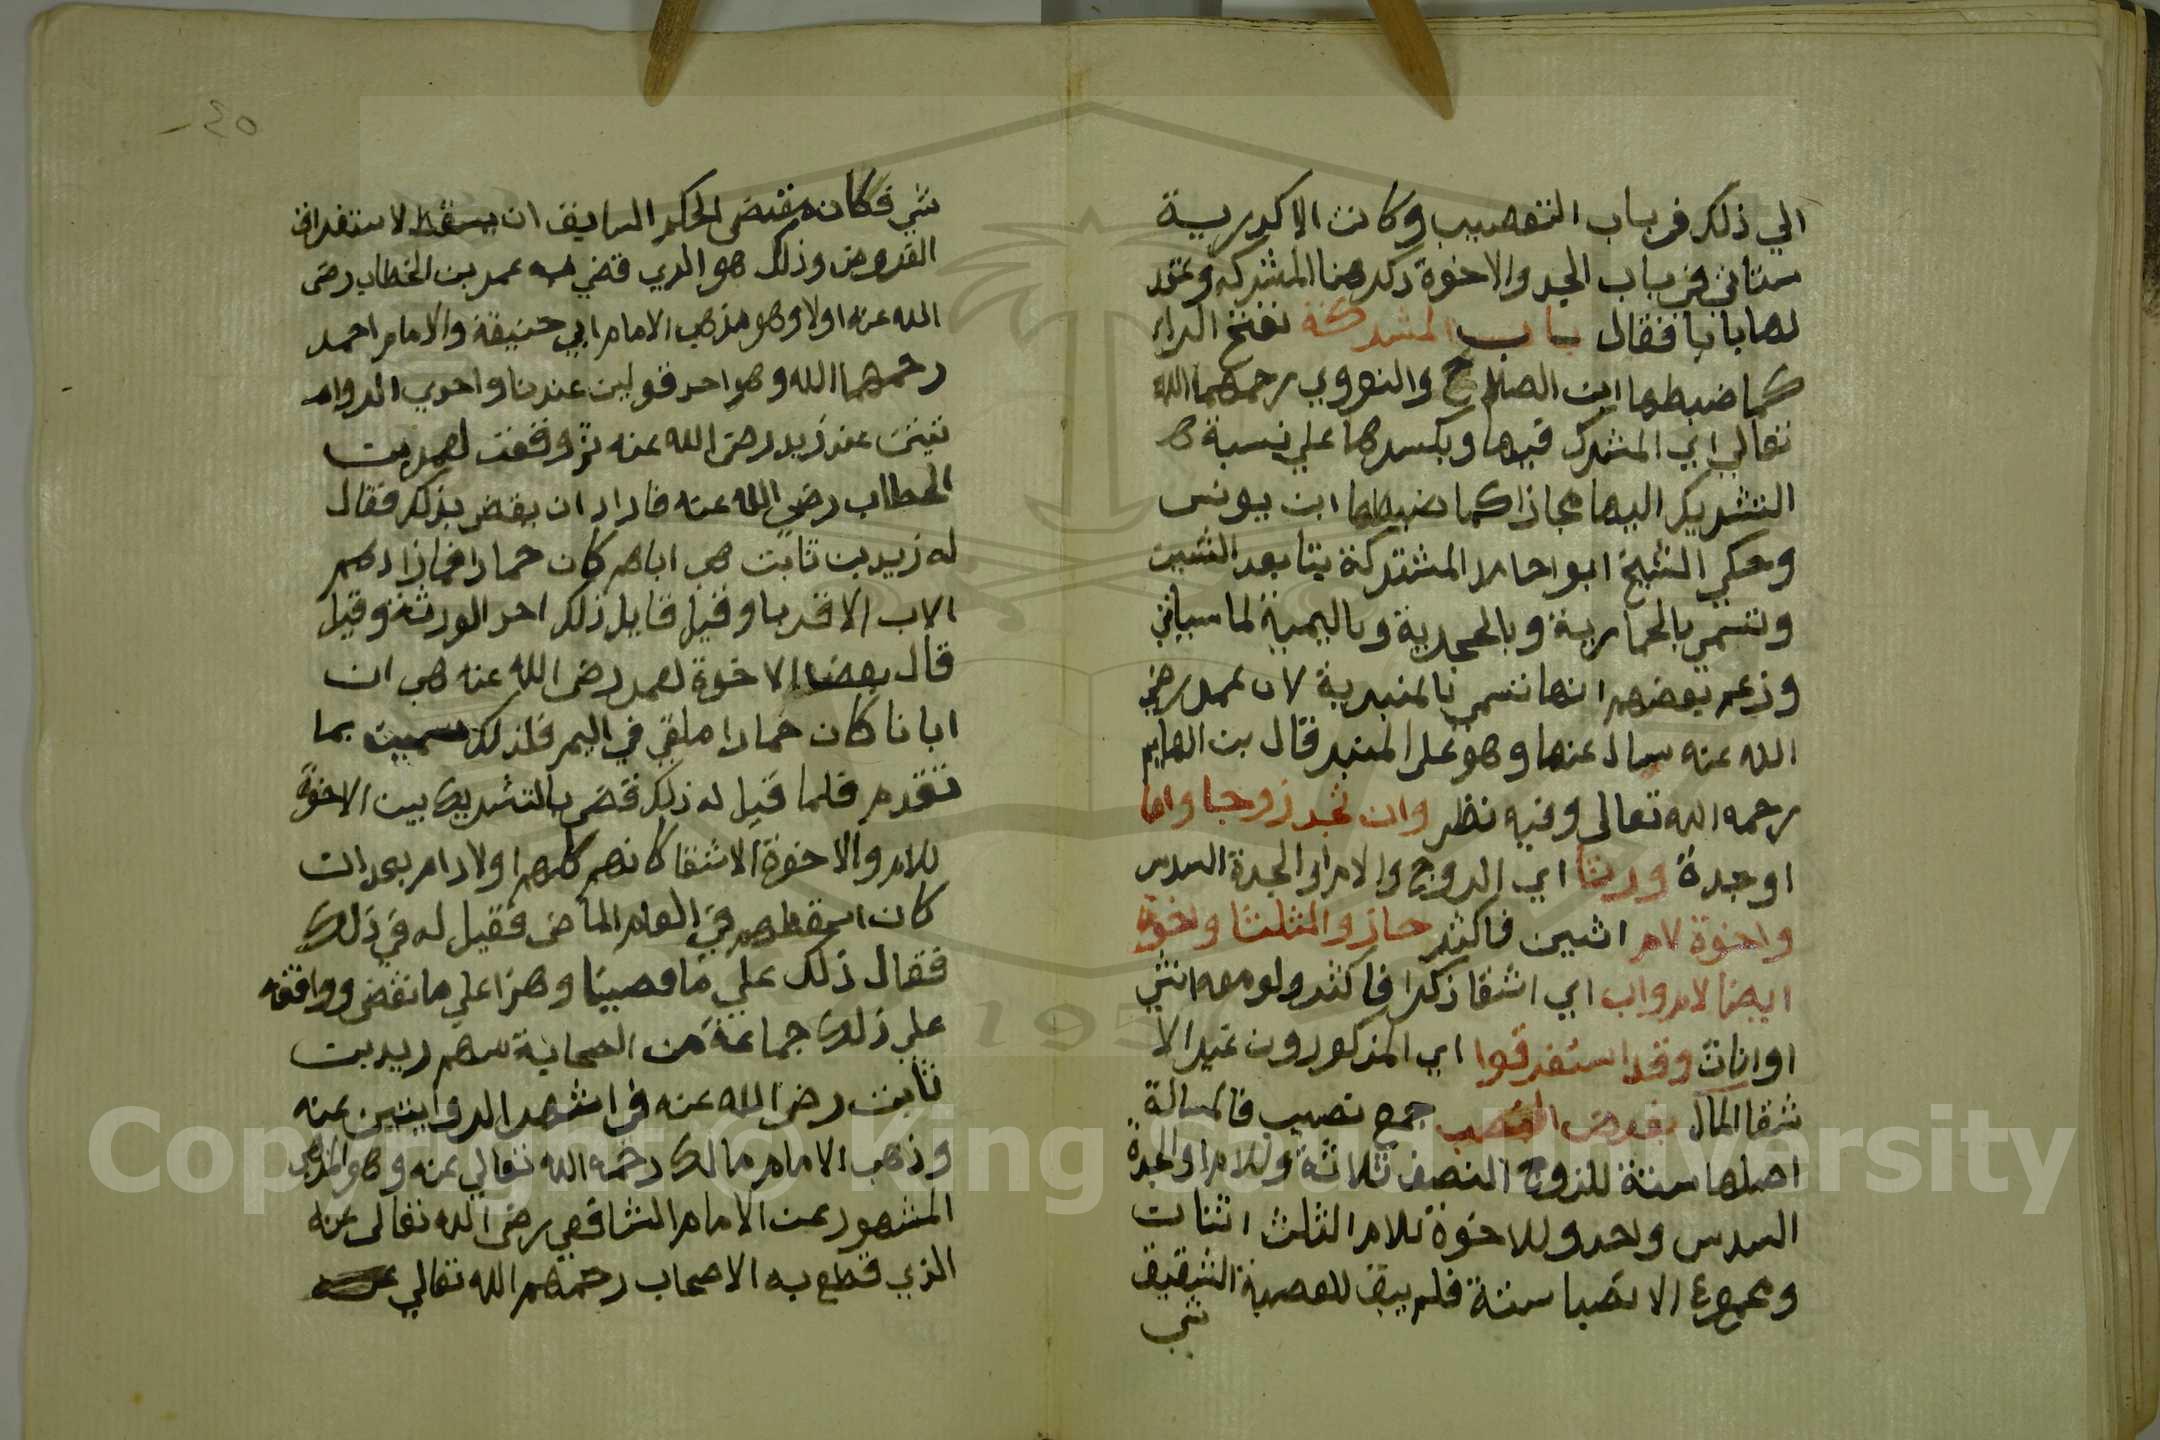 الي ذلك في باب التعصيب وكانت الاكدرية
ستاتي في باب الجد والاخوة ذكر هنا المشركه وعقد
لها بابا فقال باب المشركة بفتح الراء
كما ضبطها ابن الصلاح والنووي رحمهما الله
تعالي اي المشرك فيها وبكسرها علي نسبة
التشريك اليها مجازا كما ضبطها ابن يونس
وحكي الشيخ ابوا حامد المشتركة بتا بعد الشين
وتسمي بالحمارية وبالحجرية وباليمية لما سياتي
وزعم بعضهم انها تسمي بالمنبرية لان عمر رضي
الله عنه سال عنها وهو علي المنبر قال بن الهايم
رحمه الله تعالى وفيه نظر وان تجد زوجا واما
او جدة ورثا اي الزوج والام او الجدة السدس
واخوة لام اثنين فاكثر حازوا الثلثا واخوة
ايضا لام واب اي اشقا ذكرا فاكثر ولو معه انثي
او اناث وقد استغرقوا اي المذكورون غير الا
شقا المال بفرض النصب جمع نصيب فالمسالة
اصلها ستة للزوج النصف ثلاثة وللام او الجدة
السدس واحد وللاخوة للام الثلث اثنان
ومجموع الانصبا ستة فلم يبق للعصبة الشقيق
شي
٤٥
شي فكان مقتضى الحكم السابق ان يسقط لاستغراق
الفروض وذلك هو الذي قضي به عمر بن الخطاب رضى
الله عنه اولا وهو مذهب الامام ابي حنيفة والامام احمد
رحمهما الله وهو احد قولين عندنا واحدي الروا
يتين عند زيد رضى الله عنه ثم وقعت لعمر بن
الخطاب رضي الله عنه فاراد ان يقضي بذلك فقال
له زيد بن ثابت هب اباهم كان حمارا فما زادهم
الاب الا قربا وقيل قايل ذلك احد الورثة وقيل
قال بعض الاخوة لعمر رضى الله عنه هب ان
ابانا كان حمارا ملقي في اليم فلذلك سميت بما
تقدم فلما قيل له ذلك قضى بالتشريك بين الاخوة
للام والاخوة الاشقا كانهم كلهم اولاد ام بعد ان
كان اسقطهم في العام الماضى فقيل له في ذلك
فقال ذلك علي ما قضينا وهذا علي ما نقضى ووافقه
علي ذلك جماعة من الصحابة منهم زيد بن
ثابت رضى الله عنه في اشهر الروايتين عنه
وذهب الامام مالك رحمه الله تعالي عنه وهو المذهب
المشهور عن الامام الشافعي رضى الله تعالى عنه
الذي قطع به الاصحاب رحمهم الله تعالي
Copyright © King Saud University
195